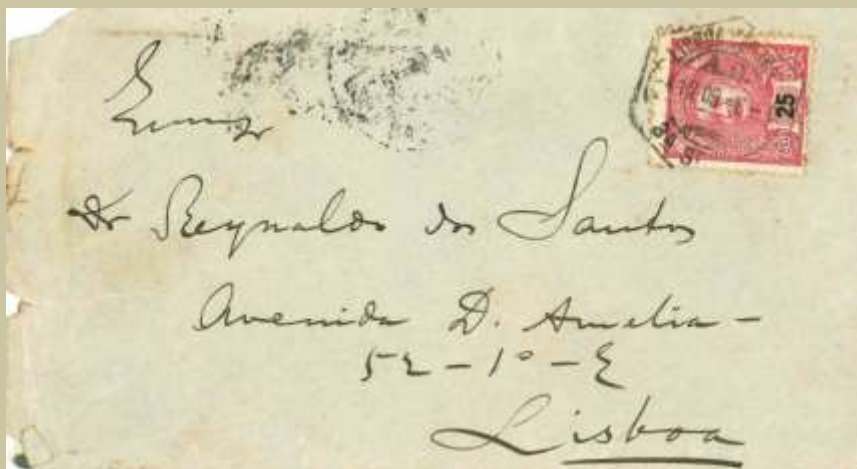 Exmo Sr
Dr Reynaldo dos Santos
Avenida D. Amelia -
52 - 1º - E
Lisboa
25